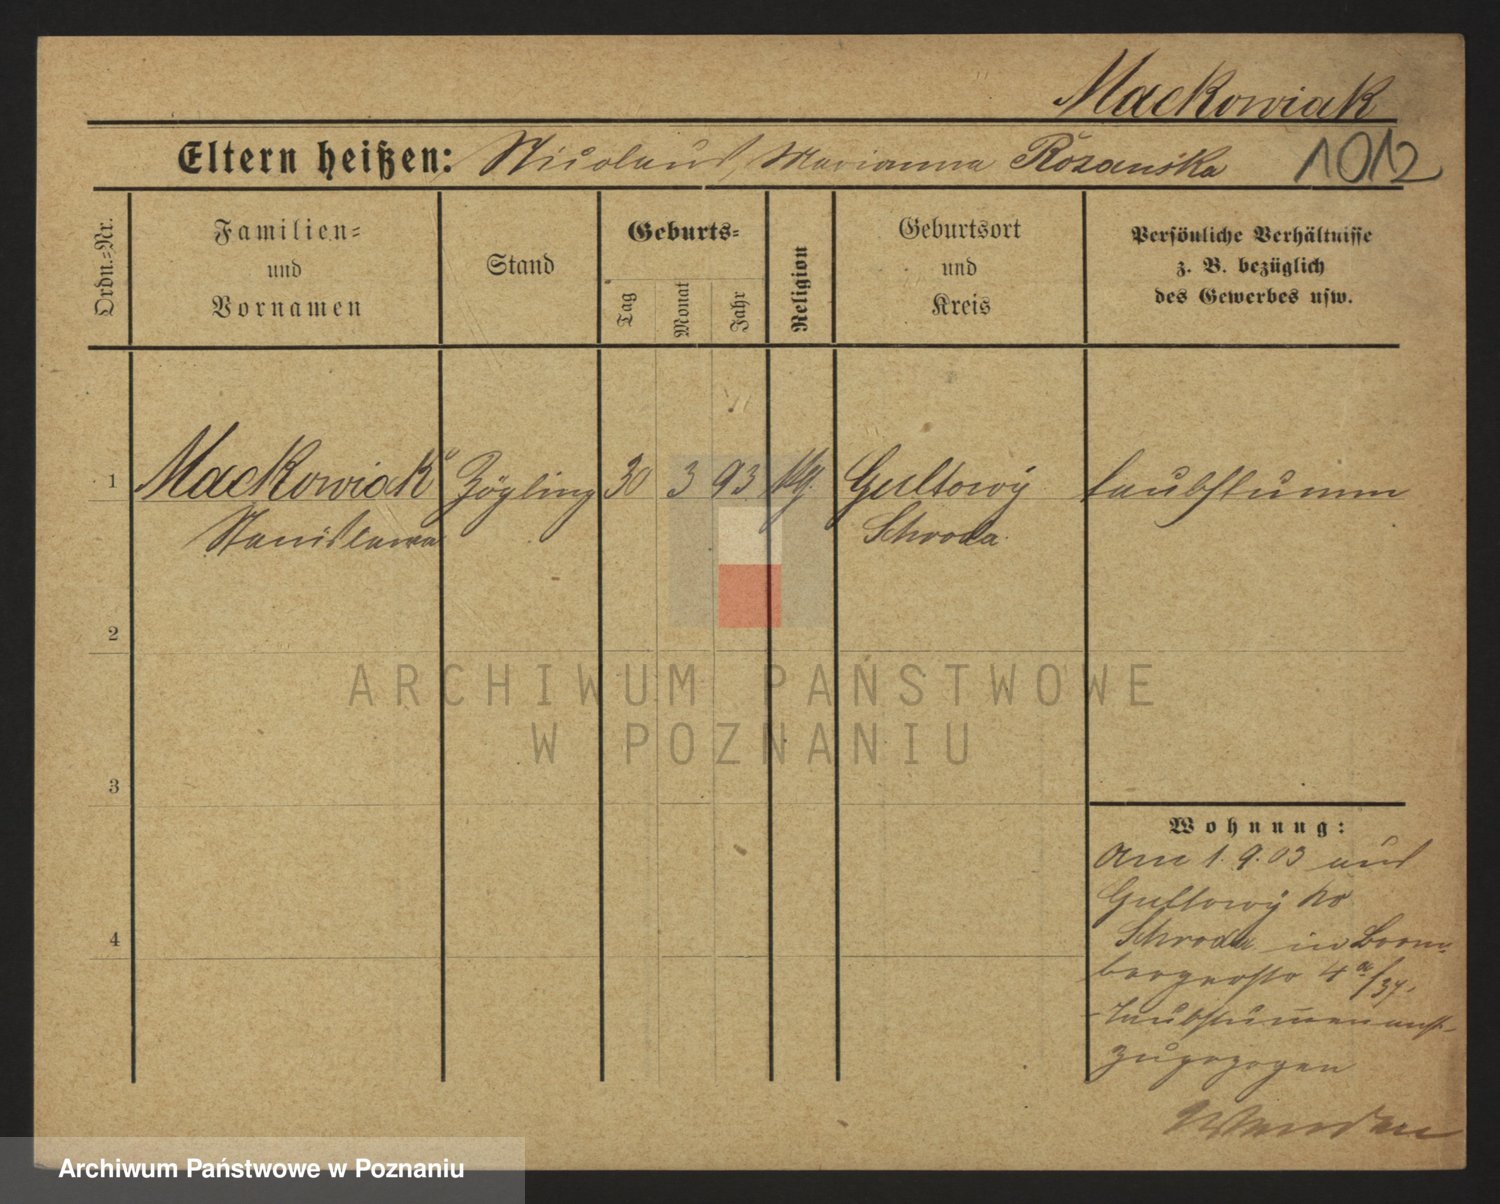 Mackowiak
Eltern heißen: Nicolaus, Marianna Rózańska 1012
Ordn.=Nr.
Familien=
und
Vornamen
Stand
Geburts=
Tag
Monat
Jahr
Religion
Geburtsort
und
Kreis
Persönliche Verhältnisse
z. B. bezüglich
des Gewerbes usw.
1 Mackowiak Zögling 30 3 93 Gultowÿ taubstumm
Stanislawa Schroda
2
3
4
Wohnung:
Am 1.9.03 aus
Gultowÿ Kr
Schroda in Brom-
bergerstr 4a/37.
Taubstum̅enanst-
zugezogen
ARCHIWUM PAŃSTWOWE
W POZNANIU
Archiwum Państwowe w Poznaniu